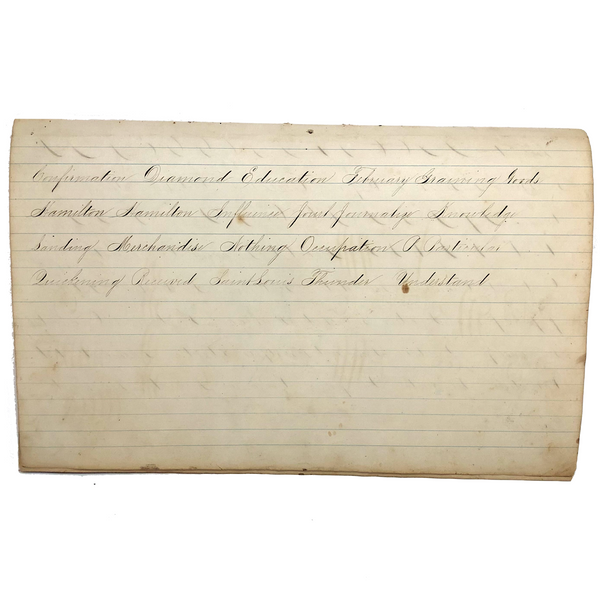 Confirmation Diamond Education February Graining Goods
Hamilton Hamilton Influence Joint Journalize Knowledge
Landing Merchandise Nothing Occupation P Particular
Quickening Received Saint Louis Thunder Understand